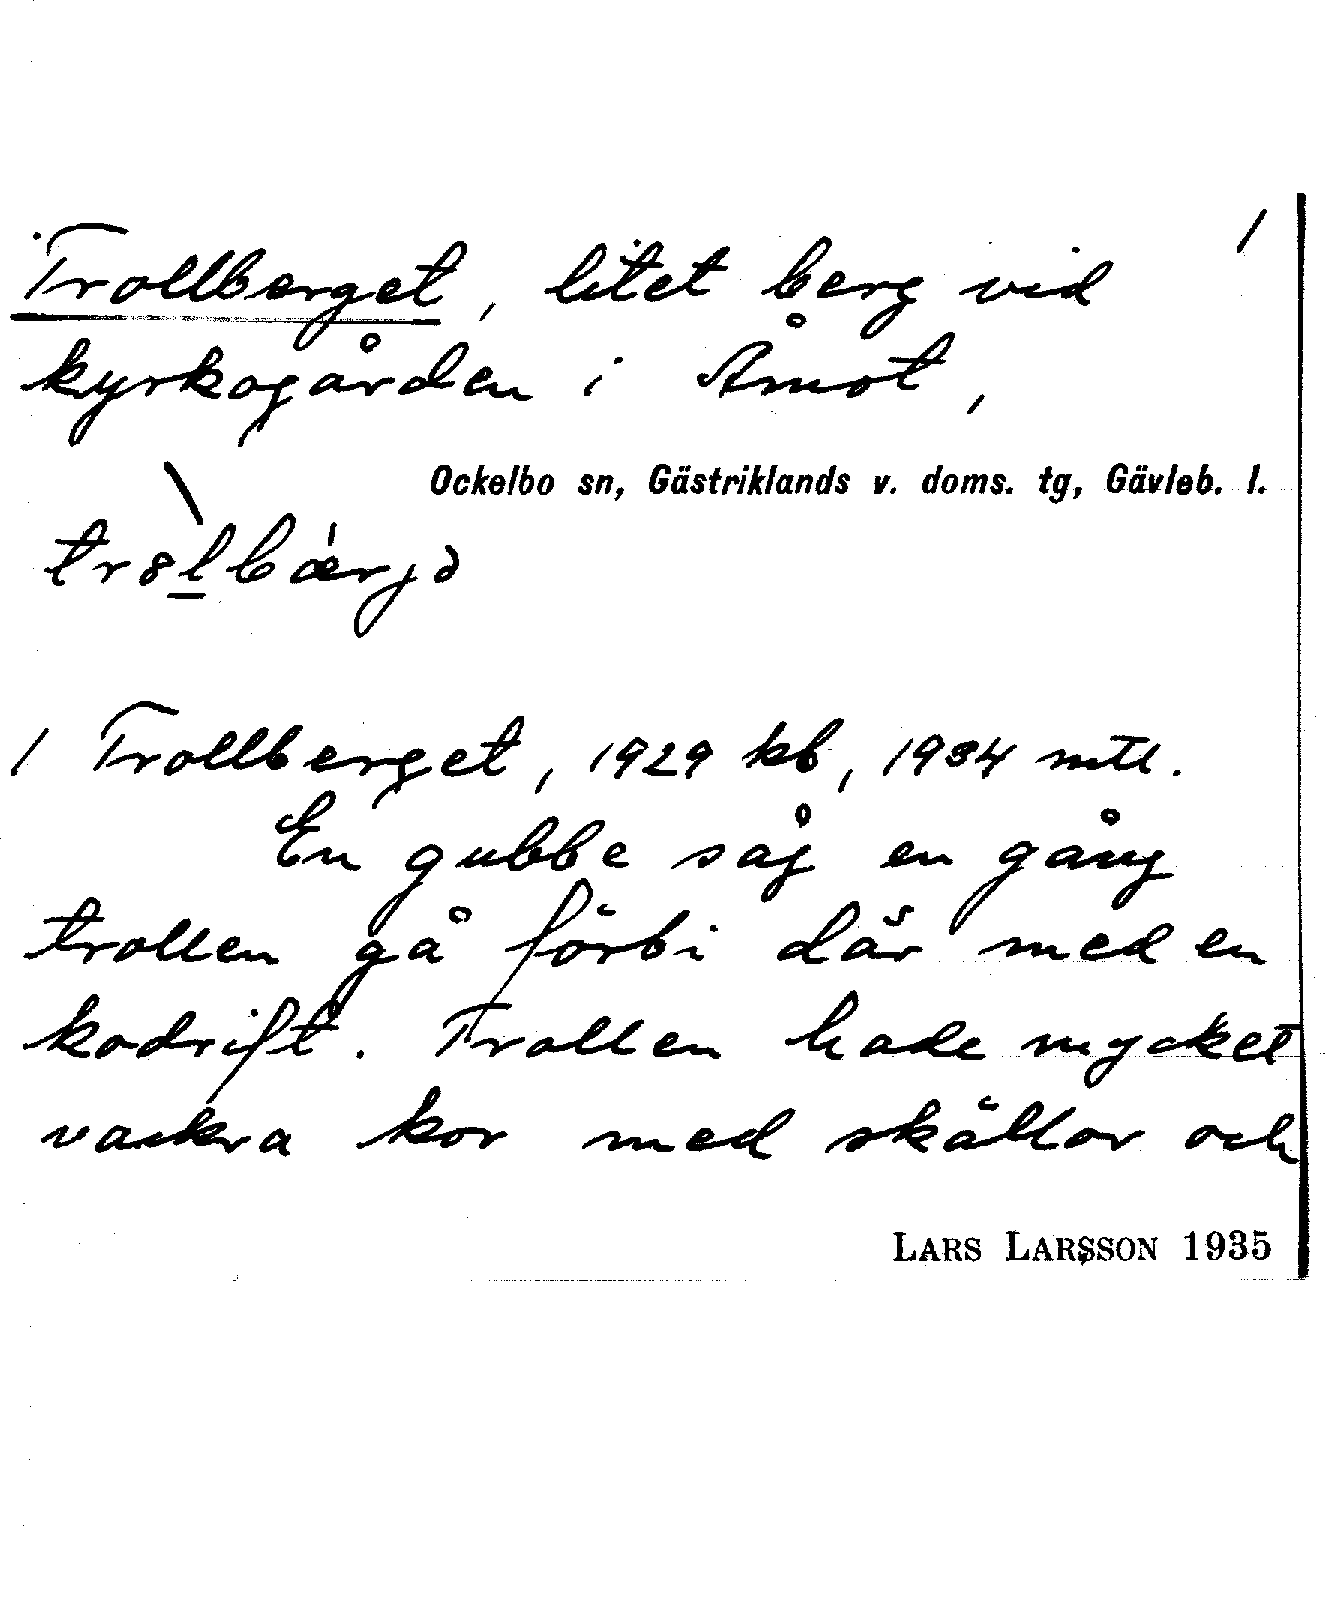 Trollberget, litet berg vid /
kyrkogården i Åmot,
Ockelbo sn, Gästriklands v. doms. tg, Gävleb. l.
1 Trollberget, 1929 kb, 1934 mtl.
En gubbe såg en gång
trollen gå förbi där med en
kodrift. Trollen hade mycket
vackra kor med skällor och
LARS LARSSON 1935